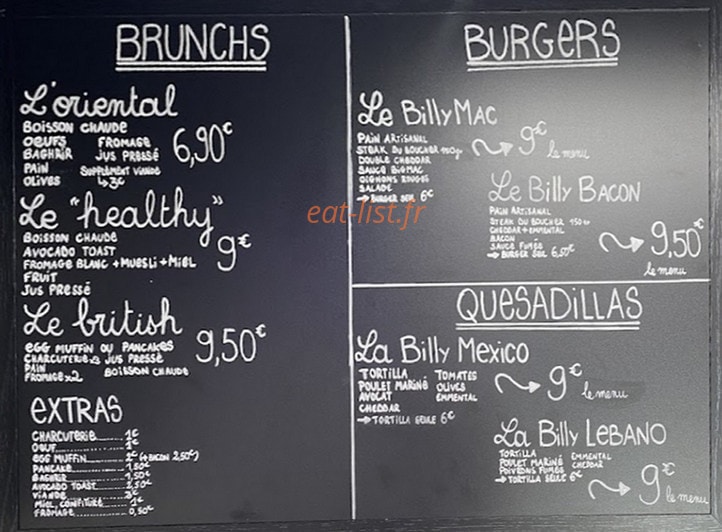 BRUNCHS
L'oriental
BOISSON CHAUDE
OEUFS FROMAGE
BAGHRIR JUS PRESSÉ
PAIN SUPPLÉMENT VIANDE
OLIVES ↳3€
6,90€
Le "healthy"
BOISSON CHAUDE
AVOCADO TOAST
FROMAGE BLANC + MUESLI + MIEL
FRUIT
JUS PRESSÉ
9€
Le british
EGG MUFFIN OU PANCAKES
CHARCUTERIE x2 JUS PRESSÉ
PAIN
FROMAGE x2 BOISSON CHAUDE
9,50€
EXTRAS
CHARCUTERIE......1€
OEUF......1€
EGG MUFFIN......2€ (+BACON 2,50€)
PANCAKE......1,50€
BAGHRIR......1,50€
AVOCADO TOAST......2,50€
VIANDE......3€
MIEL, CONFITURE......1€
FROMAGE......0,50€
BURGERS
Le BILLY MAC
PAIN ARTISANAL
STEAK DU BOUCHER 150gr
DOUBLE CHEDDAR
SAUCE BIGMAC
OIGNONS ROUGES
SALADE
→ BURGER SEUL 6€
9€
le menu
Le BILLY BACON
PAIN ARTISANAL
STEAK DU BOUCHER 150gr
CHEDDAR + EMMENTAL
BACON
SAUCE FUMÉE
→ BURGER SEUL 6,50€
9,50€
le menu
eat-list.fr
QUESADILLAS
La Billy Mexico
TORTILLA TOMATES
POULET MARINÉ OLIVES
AVOCAT EMMENTAL
CHEDDAR
→ TORTILLA SEULE 6€
9€
le menu
La Billy LEBANO
TORTILLA EMMENTAL
POULET MARINÉ CHEDDAR
POIVRONS FUMÉS
→ TORTILLA SEULE 6€
9€
le menu